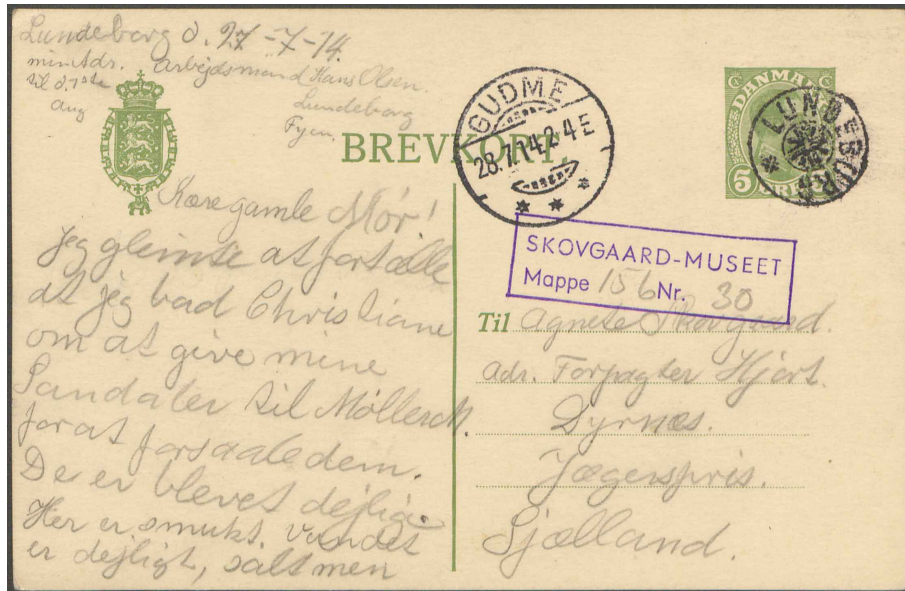 Lundeborg d. 27-7-14.
min Adr. Arbejdsmand Hans Olsen.
til d. 1ste Lundeborg
Aug Fyen.
BREVKORT
GUDME
28.7.14. 2-4 E
DANMARK
5 ØRE
LUNDEBORG
SKOVGAARD-MUSEET
Mappe 156 Nr. 30
Kære gamle Mór!
Jeg glemte at fortælle
at jeg bad Christiane
om at give mine
Sandaler til Møllerch.
for at forsaale dem.
De er blevet dejlige.
Her er smukt. Vandet
er dejligt, salt men
Til Agnete Skovgaard.
adr. Forpagter Hjort.
Dyrnæs.
Jægerspris.
Sjælland.